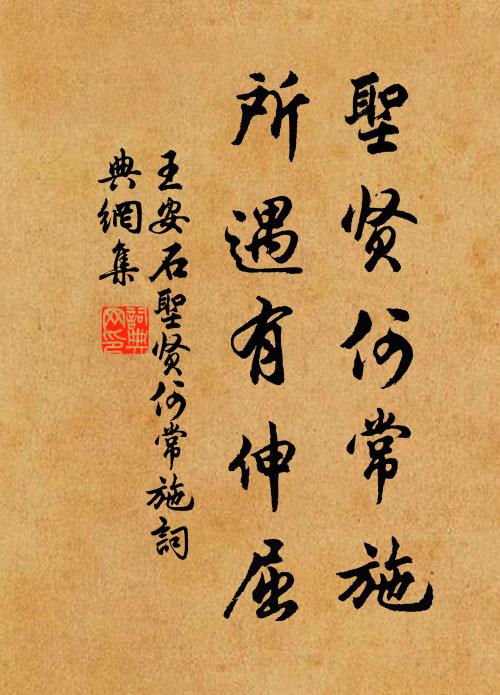 聖贤何常施
所遇有伸屈
王安石聖贤何常施詞
典網集
詞典网印